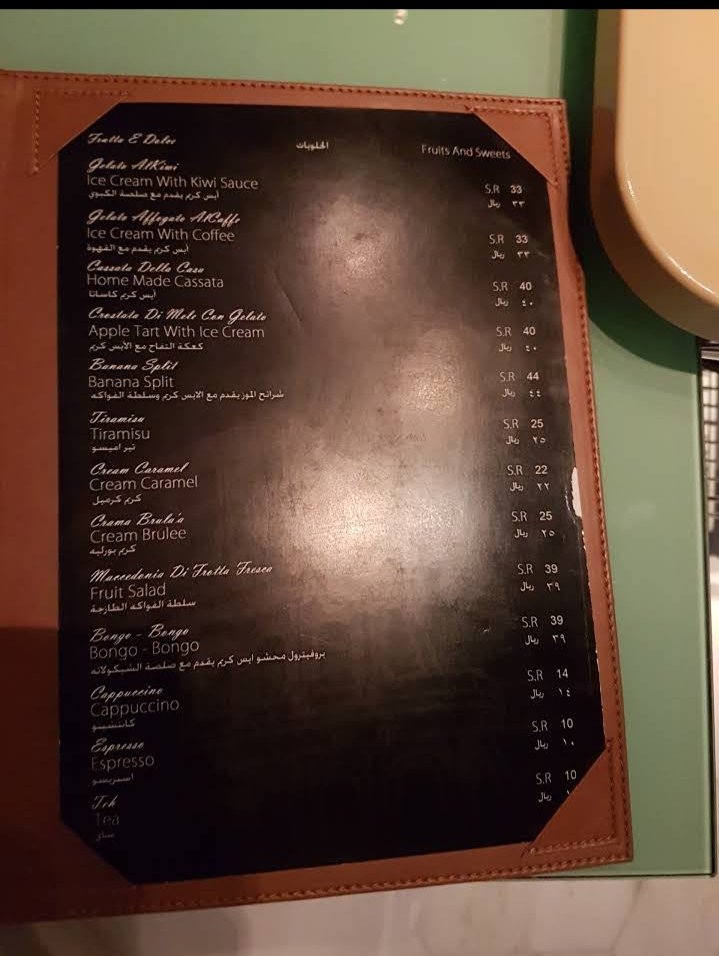 Frutta E Dolce الحلويات Fruits And Sweets
Gelato AlKiwi
Ice Cream With Kiwi Sauce S.R 33
أيس كريم يقدم مع صلصة الكيوي ريال ٣٣
Gelato Affogato AlCaffe
Ice Cream With Coffee S.R 33
أيس كريم يقدم مع القهوة ريال ٣٣
Cassata Della Casa
Home Made Cassata S.R 40
أيس كريم كاساتا ريال ٤٠
Crostata Di Mele Con Gelato
Apple Tart With Ice Cream S.R 40
كعكة التفاح مع الأيس كريم ريال ٤٠
Banana Split
Banana Split S.R 44
شرائح الموز يقدم مع الايس كريم وسلطة الفواكه ريال ٤٤
Tiramisu
Tiramisu S.R 25
تيراميسو ريال ٢٥
Cream Caramel
Cream Caramel S.R 22
كريم كرميل ريال ٢٢
Crama Brula'a
Cream Brulee S.R 25
كريم بورليه ريال ٢٥
Maccedonia Di Frotta Fresca
Fruit Salad S.R 39
سلطة الفواكه الطازجة ريال ٣٩
Bongo - Bongo
Bongo - Bongo S.R 39
بروفيترول محشو ايس كريم يقدم مع صلصة الشيكولاته ريال ٣٩
Cappuccino
Cappuccino S.R 14
كابتشينو ريال ١٤
Espresso
Espresso S.R 10
اسبريسو ريال ١٠
Teh
Tea S.R 10
شاي ريال